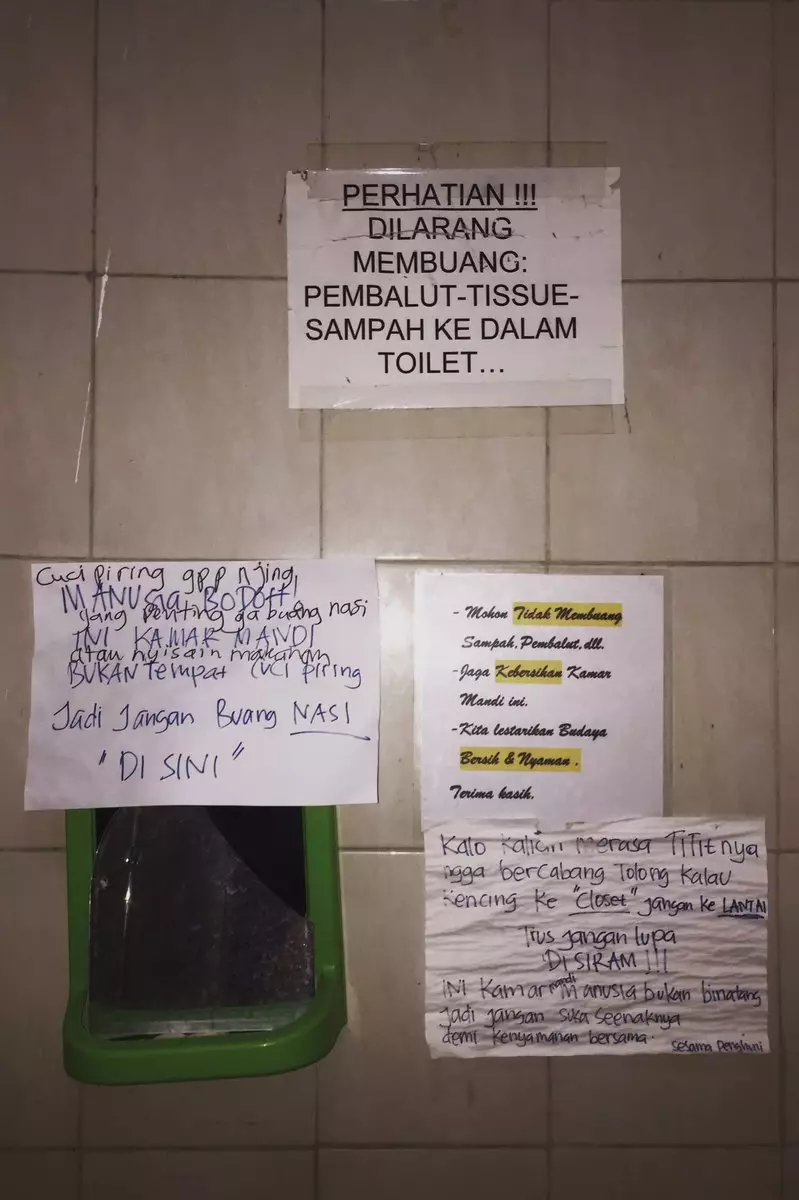 PERHATIAN !!!
DILARANG
MEMBUANG:
PEMBALUT-TISSUE-
SAMPAH KE DALAM
TOILET...
Cuci piring gpp njing,
MANUSIA BODOH!
yang penting ga buang nasi
INI KAMAR MANDI
atau nyisain makanan
BUKAN Tempat CUCI piring
Jadi Jangan Buang NASI
"DI SINI"
- Mohon Tidak Membuang
Sampah, Pembalut, dll.
-Jaga Kebersihan Kamar
Mandi ini.
-Kita lestarikan Budaya
Bersih & Nyaman .
Terima kasih.
Kalo kalian merasa TITITnya
ngga bercabang Tolong Kalau
Kencing Ke "Closet" jangan ke LANTAI
Trus jangan lupa
DI SIRAM !!!
INI Kamar mandi Manusia bukan binatang
Jadi jangan suka seenaknya
demi kenyamanan bersama.
Sesama Penghuni